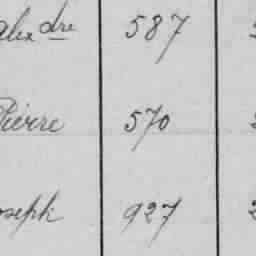 alexdre 587 2
Pierre 570 2
oseph 927 2